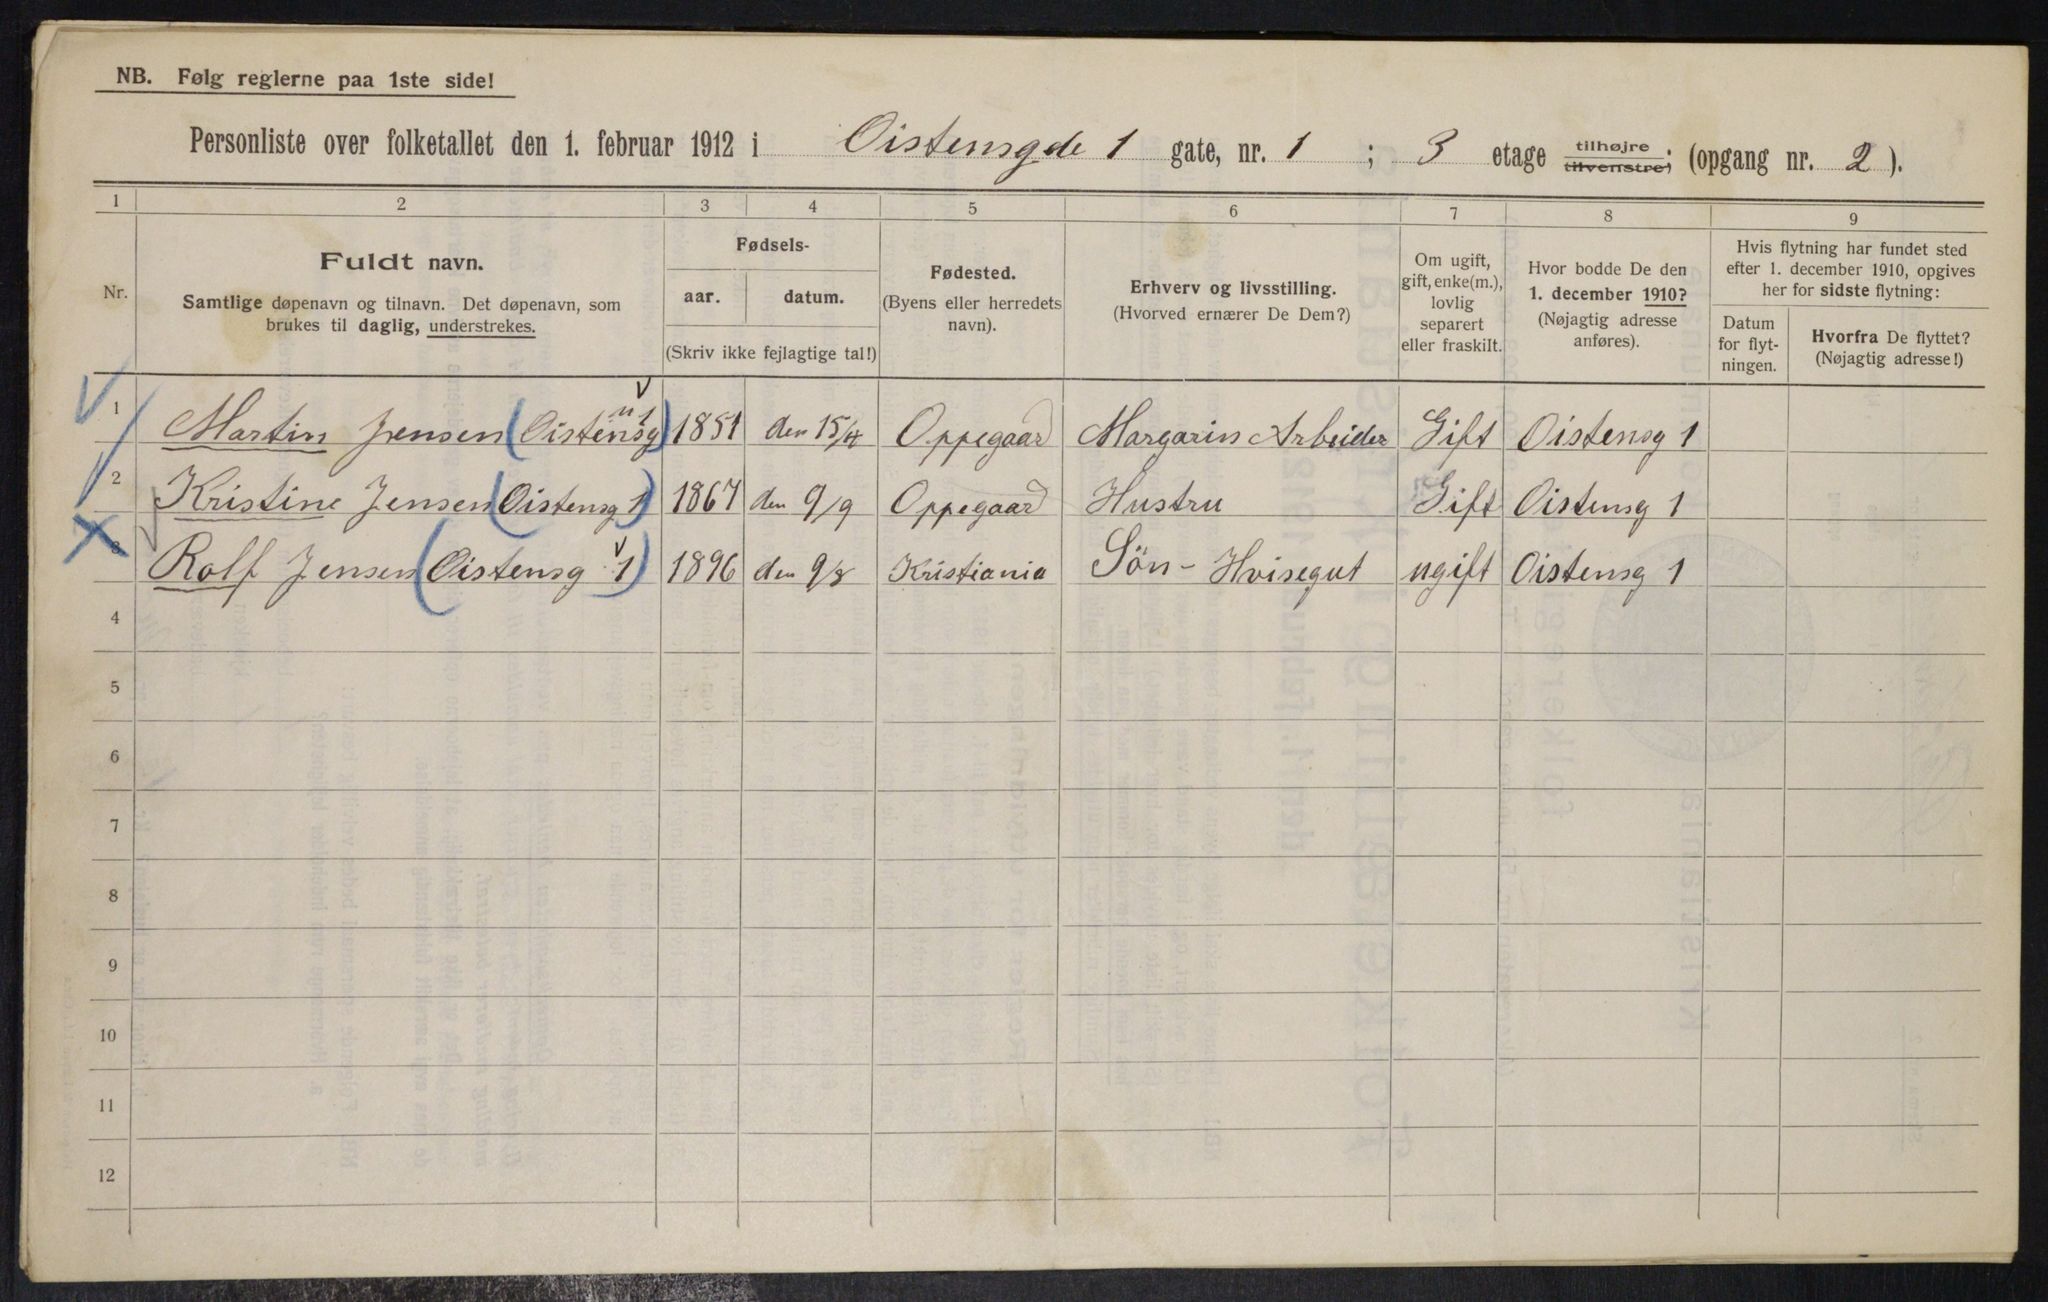 NB. Følg reglerne paa 1ste side!
Personliste over folketallet den 1. februar 1912 i Oistensgde 1 gate, nr. 1 ; 3 etage tilhøjre tilvenstre; (opgang nr. 2 ).
1 2 3 4 5 6 7 8 9
Nr.
Fuldt navn.
Samtlige døpenavn og tilnavn. Det døpenavn, som
brukes til daglig, understrekes.
Fødsels-
aar. datum.
(Skriv ikke fejlagtige tal!)
Fødested.
(Byens eller herredets
navn).
Erhverv og livsstilling.
(Hvorved ernærer De Dem?)
Om ugift,
gift, enke(m.),
lovlig
separert
eller fraskilt.
Hvor bodde De den
1. december 1910?
(Nøjagtig adresse
anføres).
Hvis flytning har fundet sted
efter 1. december 1910, opgives
her for sidste flytning:
Datum
for flyt-
ningen.
Hvorfra De flyttet?
(Nøjagtig adresse!)
1 Martin Jensen (Oistensg n 1) 1851 den 15/4 Oppegaard Margarin Arbeider Gift Oistensg 1
2 Kristine Jensen (Oistensg 1) 1867 den 9/9 Oppegaard Hustru Gift Oistensg 1
3 Rolf Jensen (Oistensg 1) 1896 den 9/8 Kristiania Sön - Hvisegut ugift Oistensg 1
4
5
6
7
8
9
10
11
12